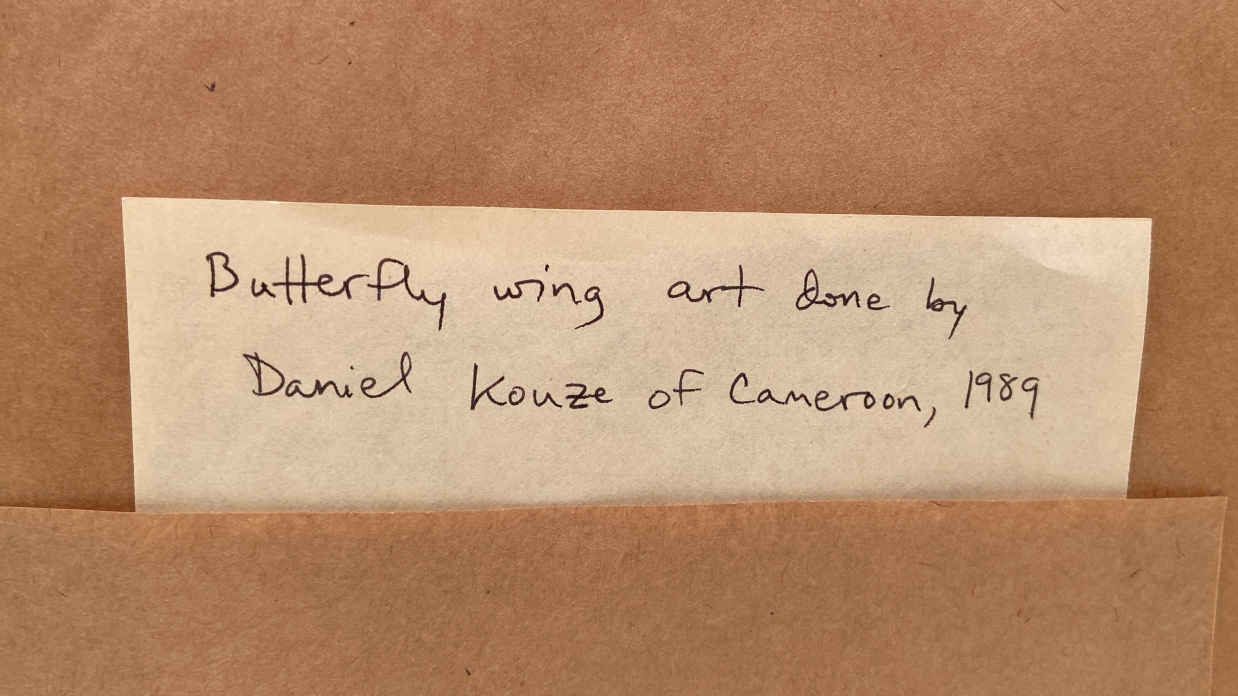 Butterfly wing art done by
Daniel Kouze of Cameroon, 1989